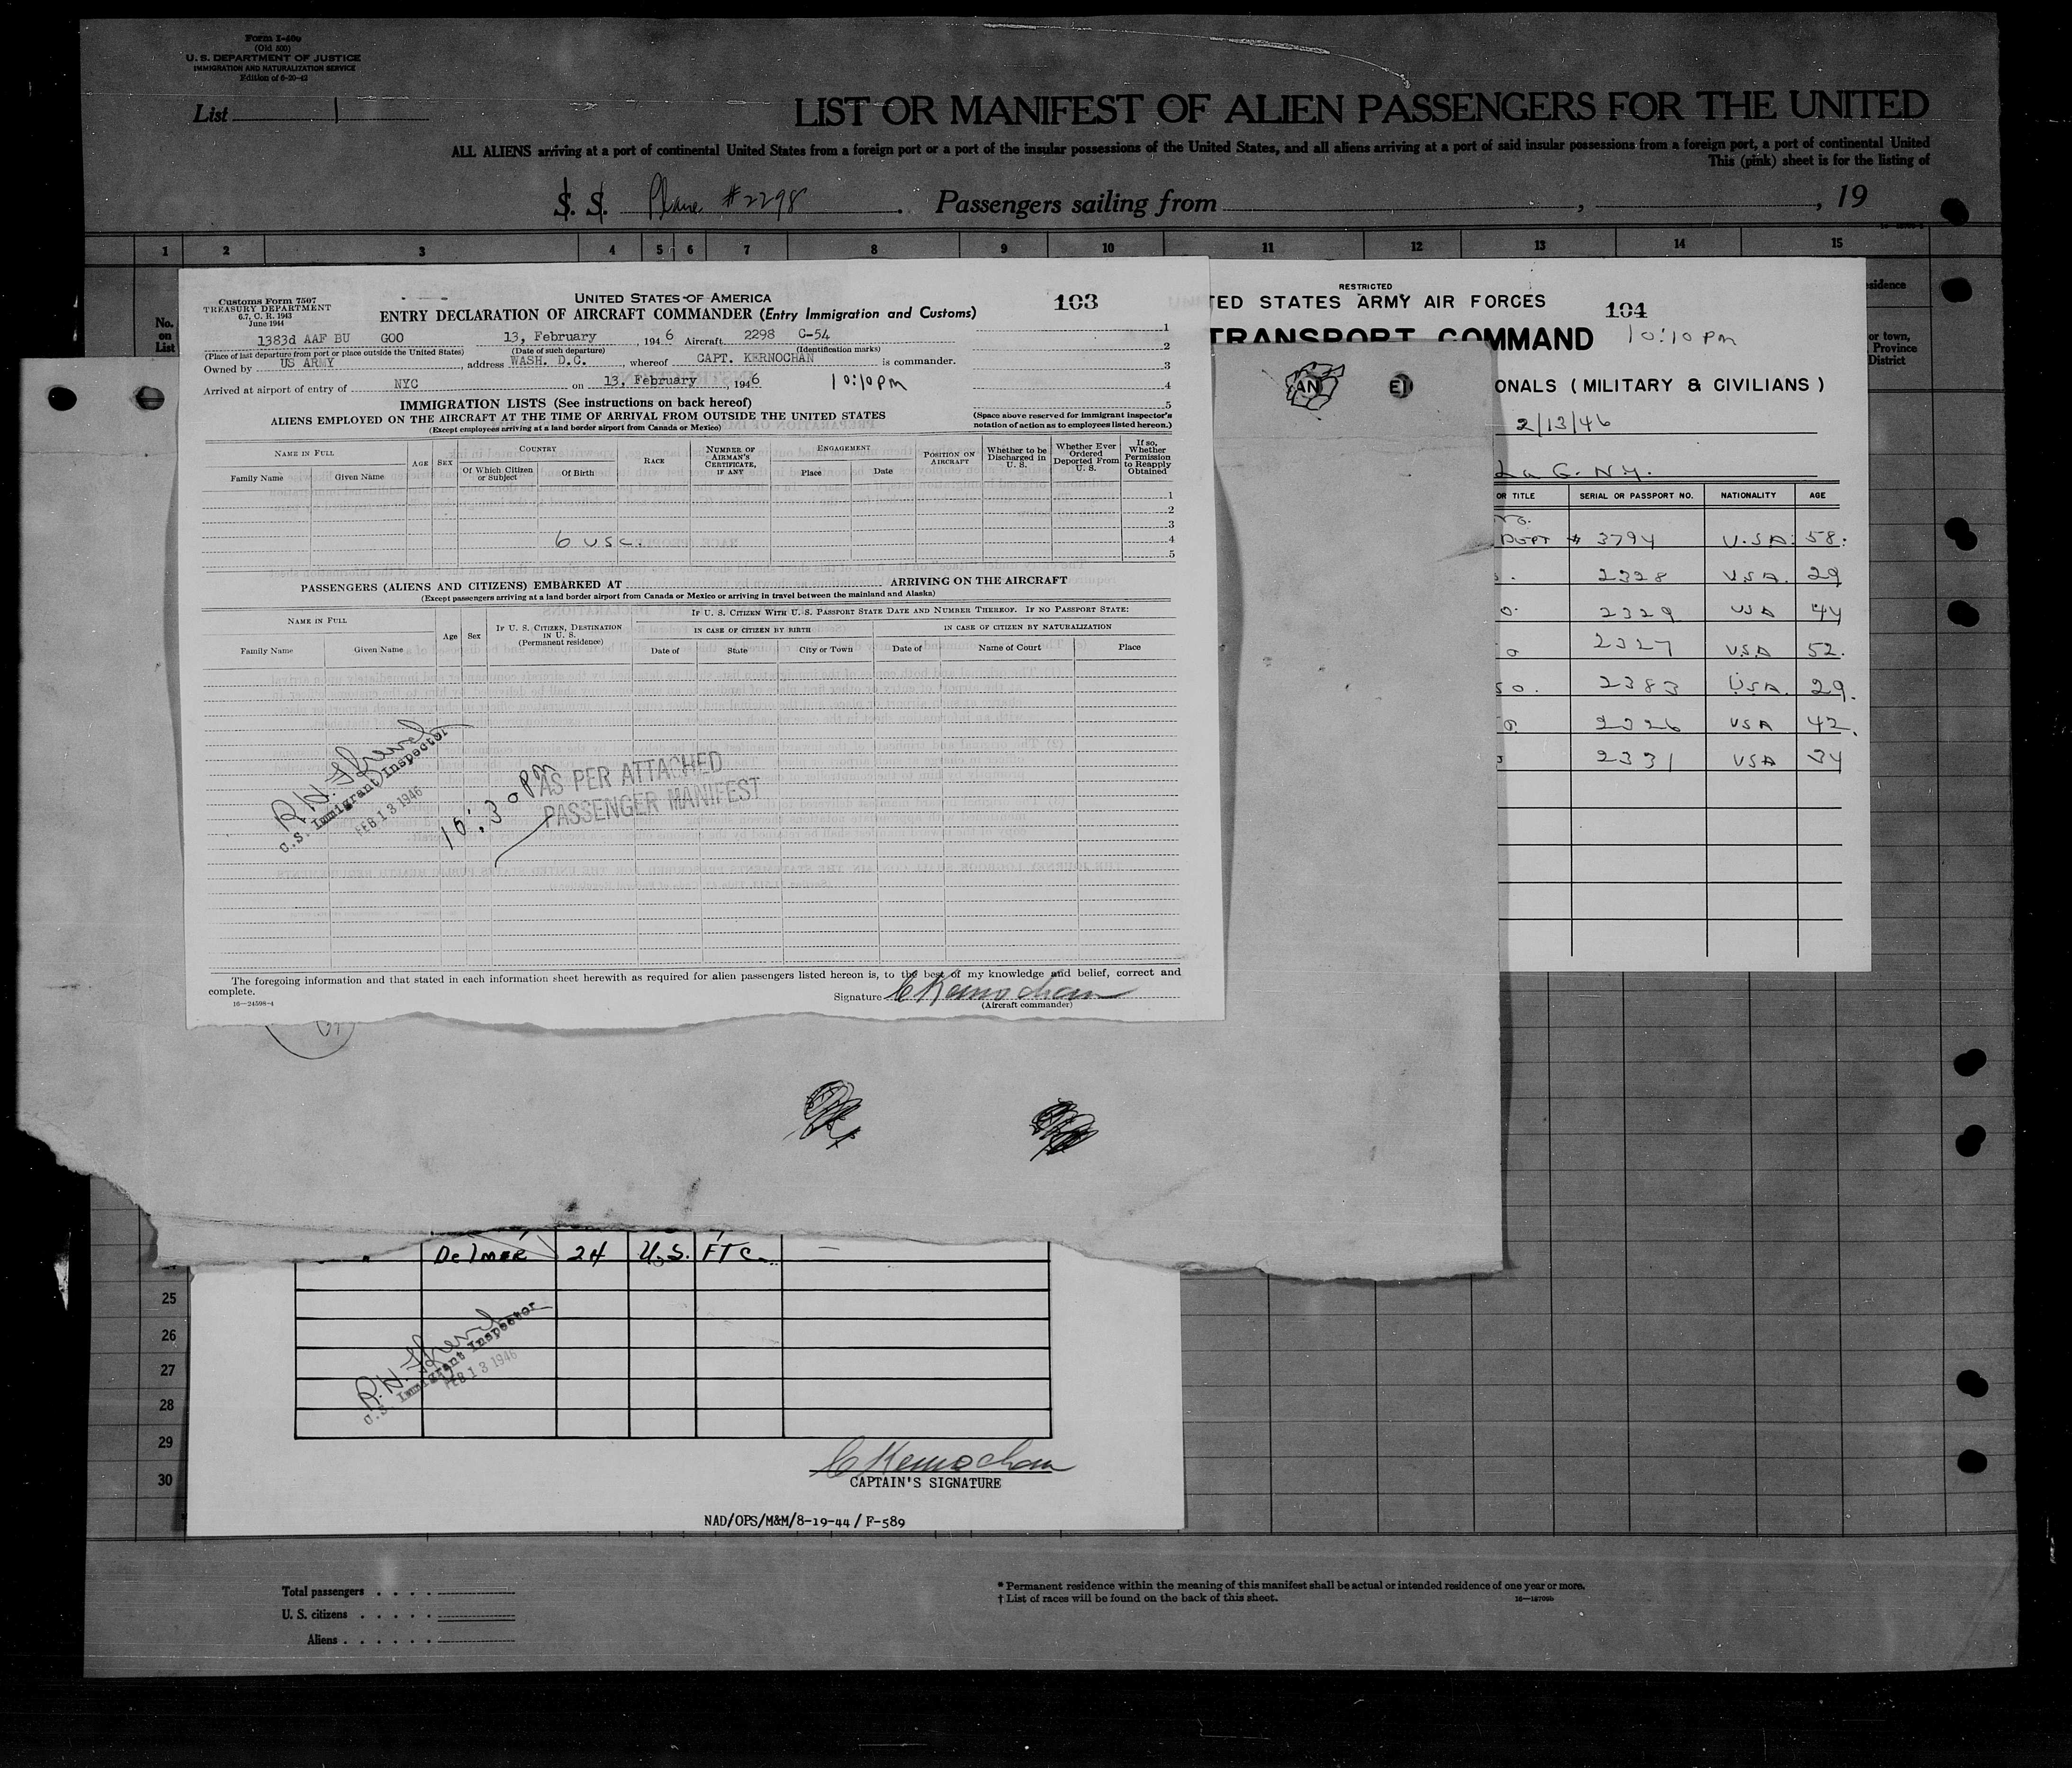 Form I-400
(Old 500)
U. S. DEPARTMENT OF JUSTICE
IMMIGRATION AND NATURALIZATION SERVICE
Edition of 6-20-42
List 1
LIST OR MANIFEST OF ALIEN PASSENGERS FOR THE UNITED
ALL ALIENS arriving at a port of continental United States from a foreign port or a port of the insular possessions of the United States, and all aliens arriving at a port of said insular possessions from a foreign port, a port of continental United
This (pink) sheet is for the listing of
S. S. Plane #2298. Passengers sailing from , , 19
1 2 3 4 5 6 7 8 9 10 11 12 13 14 15
No.
on
List
sidence
or town,
Province
District
Customs Form 7507
TREASURY DEPARTMENT
6.7, C. R. 1943
June 1944
UNITED STATES OF AMERICA
103
ENTRY DECLARATION OF AIRCRAFT COMMANDER (Entry Immigration and Customs)
1383d AAF BU GOO 13, February, 1946 Aircraft 2298 C-54
(Place of last departure from port or place outside the United States) (Date of such departure) (Identification marks)
Owned by US ARMY, address WASH. D.C., whereof CAPT. KERNOCHAN is commander.
Arrived at airport of entry of NYC on 13, February, 1946 10:10pm
1
2
3
4
5
IMMIGRATION LISTS (See instructions on back hereof)
ALIENS EMPLOYED ON THE AIRCRAFT AT THE TIME OF ARRIVAL FROM OUTSIDE THE UNITED STATES
(Except employees arriving at a land border airport from Canada or Mexico)
(Space above reserved for immigrant inspector's
notation of action as to employees listed hereon.)
NAME IN FULL
Family Name Given Name
AGE SEX
COUNTRY
Of Which Citizen or Subject
Of Birth
RACE
NUMBER OF AIRMAN'S CERTIFICATE, IF ANY
ENGAGEMENT
Place Date
POSITION ON AIRCRAFT
Whether to be Discharged in U. S.
Whether Ever Ordered Deported From U. S.
If so, Whether Permission to Reapply Obtained
1
2
3
6 USC. 4
5
PASSENGERS (ALIENS AND CITIZENS) EMBARKED AT ARRIVING ON THE AIRCRAFT
(Except passengers arriving at a land border airport from Canada or Mexico or arriving in travel between the mainland and Alaska)
NAME IN FULL
Family Name Given Name
Age Sex
IF U. S. CITIZEN, DESTINATION IN U. S.
(Permanent residence)
IF U. S. CITIZEN WITH U. S. PASSPORT STATE DATE AND NUMBER THEREOF. IF NO PASSPORT STATE:
IN CASE OF CITIZEN BY BIRTH IN CASE OF CITIZEN BY NATURALIZATION
Date of State City or Town Date of Name of Court Place
U.S. Immigrant Inspector
FEB 13 1946
10:30 PM
AS PER ATTACHED
PASSENGER MANIFEST
The foregoing information and that stated in each information sheet herewith as required for alien passengers listed hereon is, to the best of my knowledge and belief, correct and
complete.
16—24598-4
Signature C Kernochan
(Aircraft commander)
RESTRICTED
TED STATES ARMY AIR FORCES
104
TRANSPORT COMMAND 10:10 pm
AN E
ONALS (MILITARY & CIVILIANS)
2/13/46
La G. N.Y.
OR TITLE SERIAL OR PASSPORT NO. NATIONALITY AGE
DEPT # 3794 U.S.A. 58
2328 USA. 29
2329 USA 44
2327 USA 52.
2383 USA. 29.
2326 USA 42.
2331 USA 34
Delmer 24 U.S. FTC. —
25
26
27
28
29
30
U.S. Immigrant Inspector
FEB 13 1946
C Kernochan
CAPTAIN'S SIGNATURE
NAD/OPS/M&M/8-19-44/ F-589
Total passengers
U. S. citizens
Aliens
* Permanent residence within the meaning of this manifest shall be actual or intended residence of one year or more.
† List of races will be found on the back of this sheet.